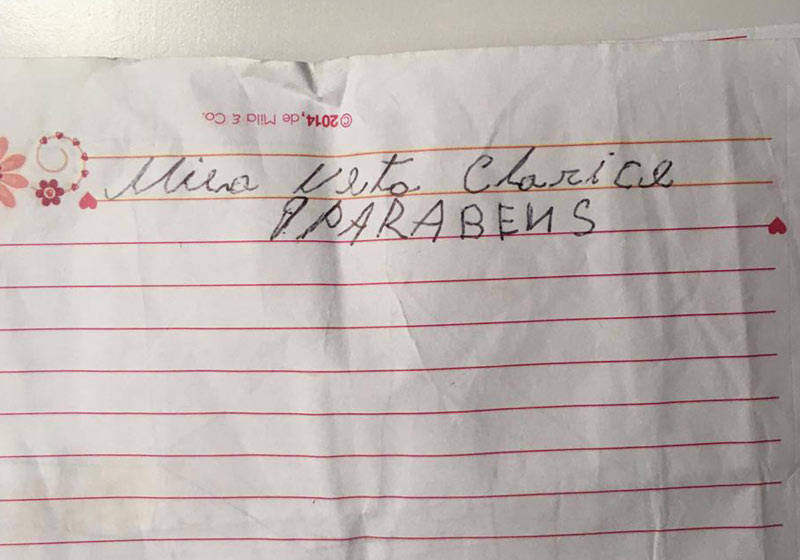 ©2014, de Mila & Co.
Neta Clarice
PARABENS